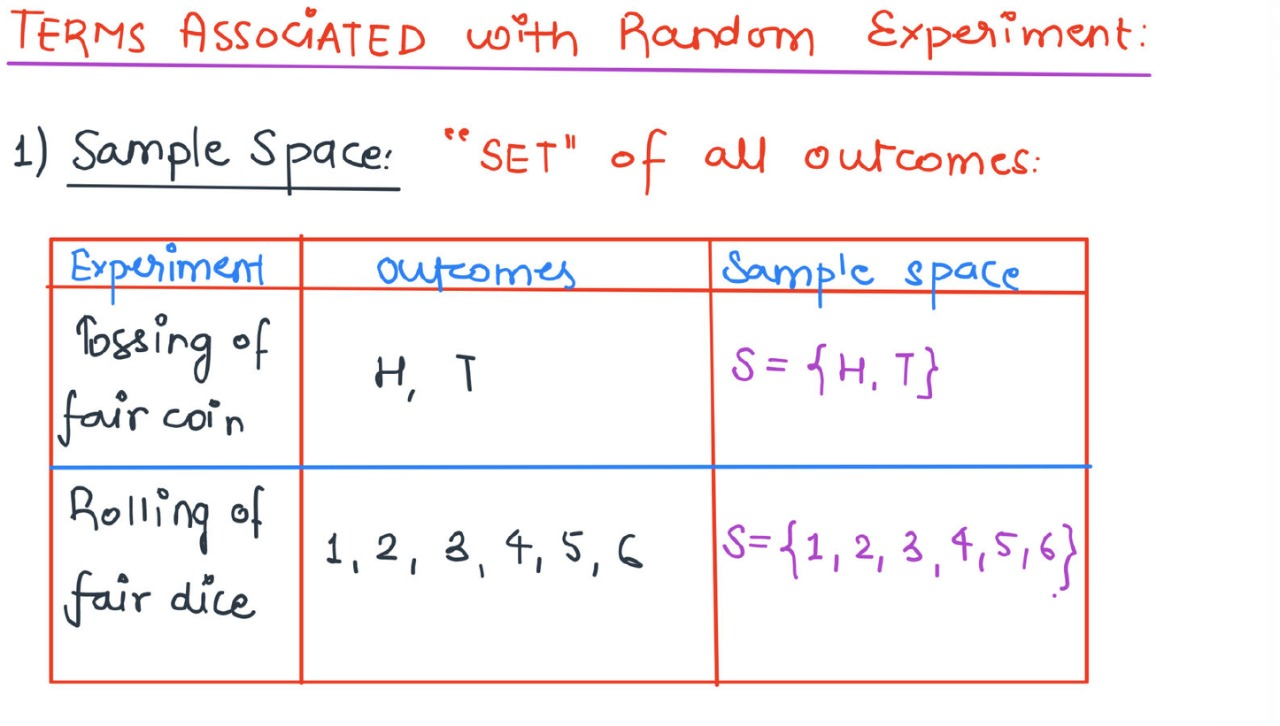 TERMS ASSOCiATED with Random Experiment:
1) Sample Space: "SET" of all outcomes:
Experiment outcomes Sample space
Tossing of
fair coin
H, T
S = {H, T}
Rolling of
fair dice
1, 2, 3, 4, 5, 6
S={1, 2, 3, 4, 5, 6}